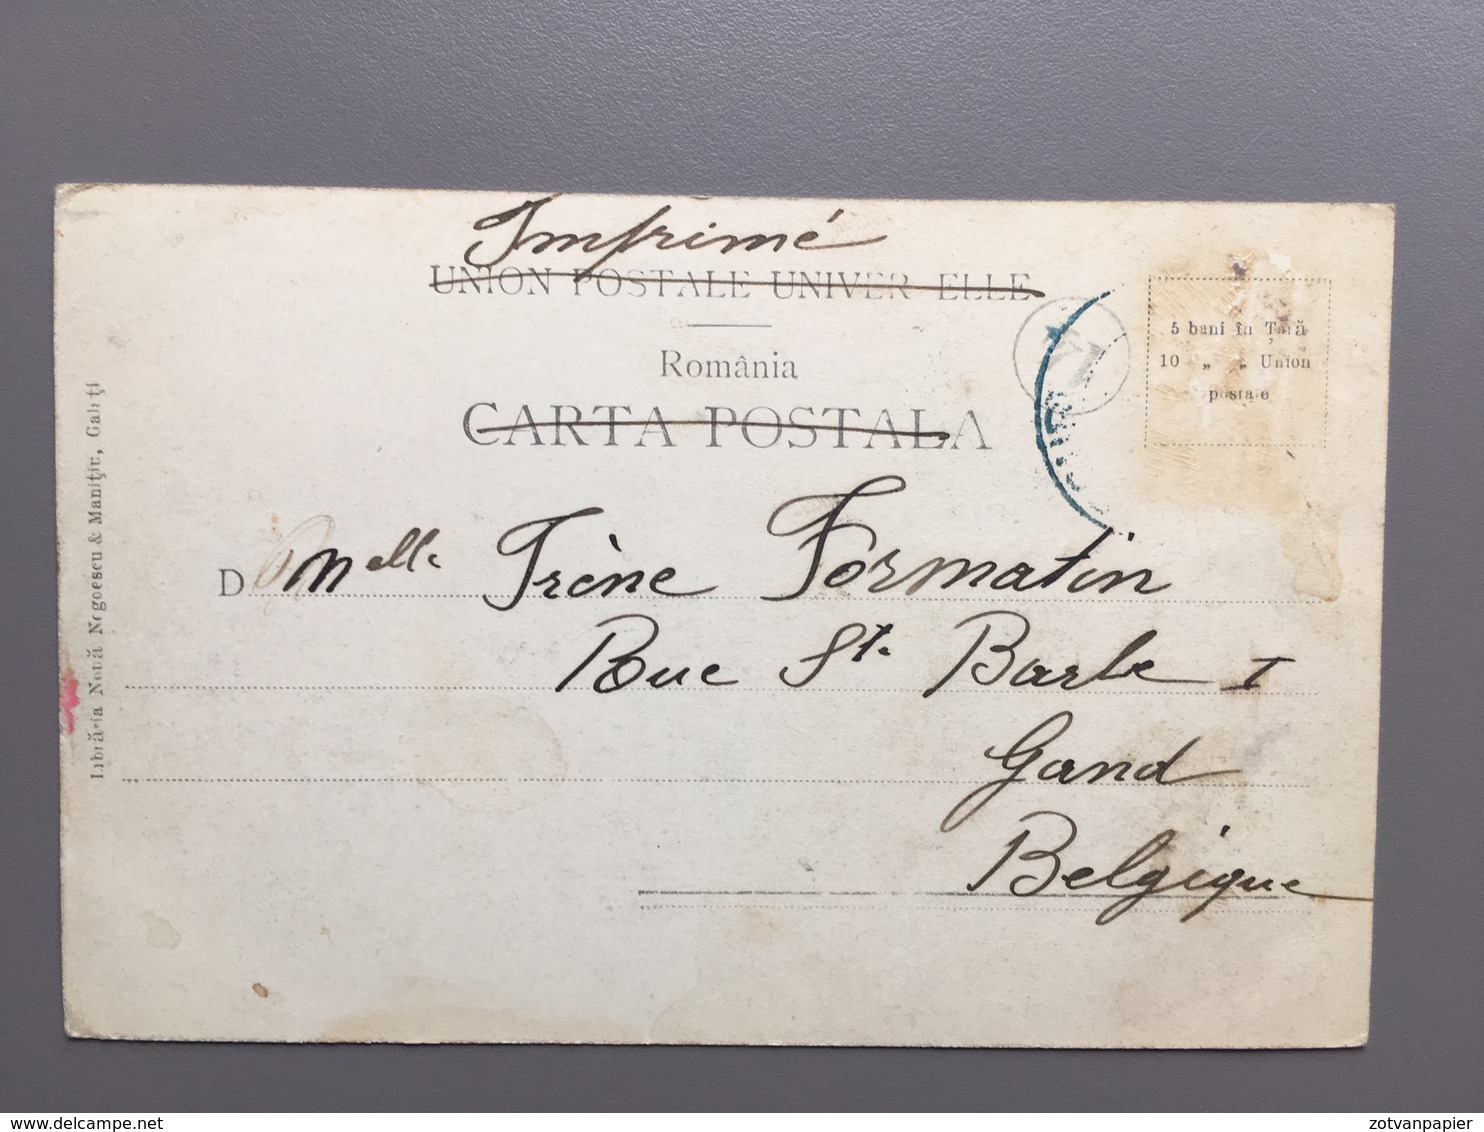 Imprimé
UNION POSTALE UNIVER ELLE
România
CARTA POSTALA
5 bani în Țară
10 „ „ Union
postale
D Melle Irène Formatin
Rue Ste Barbe I
Gand
Belgique
Librăria Nouă Negoescu & Manițiu, Galați
delcampe.net
zotvanpapier